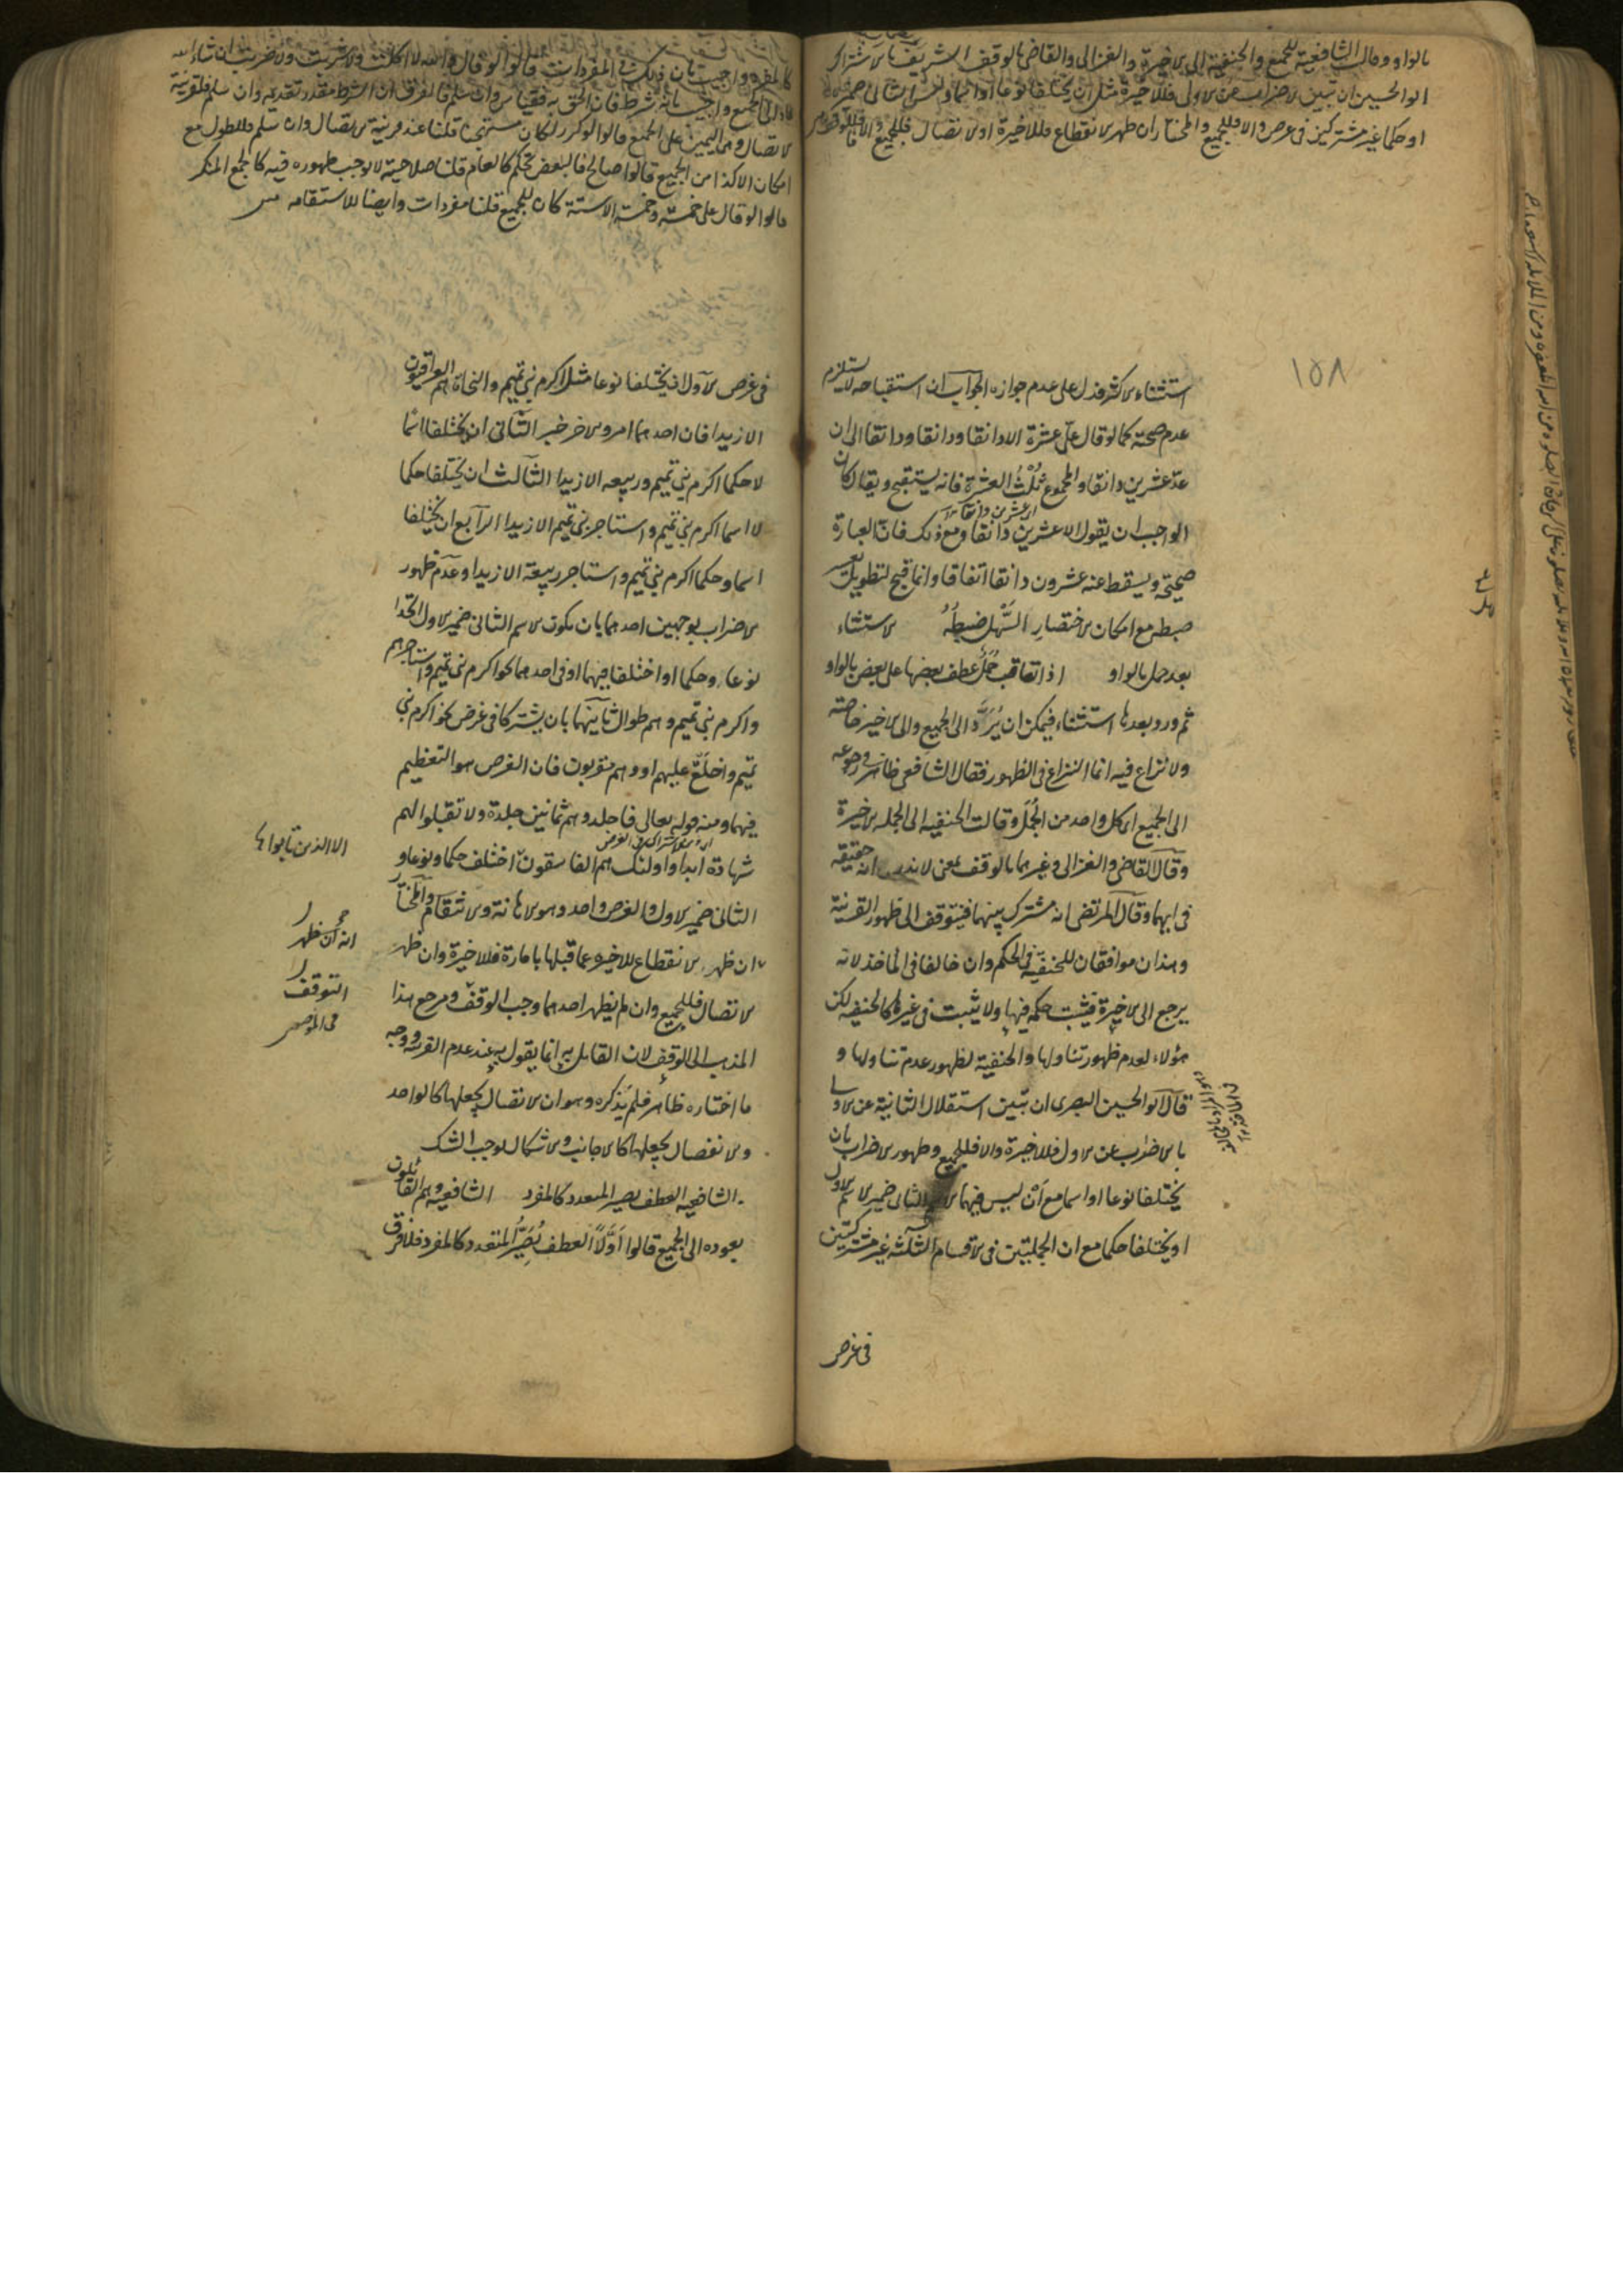 بالواو وقالت الشافعية للجميع والحنفية الى الاخيرة والغزالى والقاضى بالوقف الشريف بالاشتراك
ابو الحسين ان تبين الاضراب عن الاولى فللاخيرة مثل ان يختلفا نوعا او اسما وليس الثانى ضميره
او حكما غير مشتركين فى غرض والا فللجميع والمختار ان ظهر الانقطاع فللاخيرة او الاتصال فللجميع والا فالوقف
١٥٨
استثناء الاكثر فدل على عدم جوازه الجواب ان استقباحه لا يستلزم
عدم صحته كما لو قال علىّ عشرة الا دانقا ودانقا ودانقا الى ان
عدّ عشرين دانقا والمجموع ثلث العشرة فانه يستقبح ويقال كان
الواجب ان يقول الا عشرين دانقا ومع ذلك فان العبارة
صحيحة ويسقط عنه عشرون دانقا اتفاقا وانما قبح لتطويل يعسر
ضبطه مع امكان الاختصار السهل ضبطه الاستثناء
بعد جمل بالواو اذا تعاقب جمل عطف بعضها على بعض بالواو
ثم ورد بعدها استثناء فيمكن ان يردّ الى الجميع والى الاخير خاصة
ولا نزاع فيه انما النزاع فى الظهور فقال الشافعى ظاهر رجوعه
الى الجميع اى كل واحد من الجمل وقالت الحنفيه الى الجمله الاخيرة
وقال القاضى والغزالى وغيرهما بالوقف بمعنى لا ندرى انه حقيقة
فى ايهما وقال المرتضى انه مشترك بينهما فيتوقف الى ظهور القرينة
وهذان موافقان للحنفية فى الحكم وان خالفا فى الماخذ لانه
يرجع الى الاخيرة فيثبت حكمه فيها ولا يثبت فى غيرها كالحنفيه لكن
هؤلاء لعدم ظهور تناولها والحنفية لظهور عدم تناولها و
قال ابو الحسين البصرى ان تبين استقلال الثانية عن الاولى
بالاضراب عن الاول فللاخيرة والا فللجميع وظهور الاضراب بان
يختلفا نوعا او اسما مع أن ليس فيهما الاسم الثانى ضمير الاسم الاول
او يختلفا حكما مع ان الجملتين فى الاقسام الثلثة غير مشتركتين
فى غرض
كالمفرد واجيب بان ذلك فى المفردات قالوا لو قال والله لا اكلت ولا شربت ولا ضربت ان شاء الله
عاد الى الجميع واجيب بانه شرط فان الحق به فقياس وان سلم فالفرق ان الشرط مقدر تقديمه وان سلم فلقرينة
الاتصال وهى اليمين على الجميع قالوا لو كرر لكان مستهجنا قلنا عند قرينة الاتصال وان سلم فللطول مع
امكان الا كذا من الجميع قالوا صالح فالبعض تحكم كالعام قلنا صلاحيته لا توجب ظهوره فيه كالجمع المنكر
قالوا لو قال على خمسة وخمسة الا ستة كان للجميع قلنا مفردات وايضا للاستقامه
فى غرض الاول ان يختلفا نوعا مثل اكرم بنى تميم والنحاة هم العراقيون
الا زيدا فان احدهما امر والاخر خبر الثانى ان يختلفا اسما
لا حكما اكرم بنى تميم وربيعه الا زيدا الثالث ان يختلفا حكما
لا اسما اكرم بنى تميم واستاجر بنى تميم الا زيدا الرابع ان يختلفا
اسما وحكما اكرم بنى تميم واستاجر ربيعة الا زيدا وعدم ظهور
الاضراب بوجهين احدهما بان يكون الاسم الثانى ضمير الاول اتحدا
نوعا وحكما او اختلفا فيهما او فى احدهما نحو اكرم بنى تميم واستاجرهم
واكرم بنى تميم وهم طوال ثانيهما بان يشتركا فى غرض نحو اكرم بنى
تميم واخلع عليهم او وهم مقربون فان الغرض هو التعظيم
فيهما ومنه قوله تعالى فاجلدوهم ثمانين جلدة ولا تقبلوا لهم
شهادة ابدا واولئك هم الفاسقون اختلف حكما ونوعا و
الا الذين تابوا
الثانى ضمير الاول والغرض واحد وهو الاهانة والانتقام والمختار
ان ظهر الانقطاع للاخيره عما قبلها بامارة فللاخيرة وان ظهر
انه ان ظهر
الاتصال فللجميع وان لم يظهر احدهما وجب الوقف ومرجع هذا
التوقف
المذهب الى الوقف لان القايل به انما يقول به عند عدم القرينه ووجه
ما اختاره ظاهر فلم يذكره وهو ان الاتصال يجعلها كالواحد
والانفصال يجعلها كالاجانب والاشكال يوجب الشك
الشافعيه العطف يصير المتعدد كالمفرد الشافعية وهم القائلون
بعوده الى الجميع قالوا اوّلا العطف يُصيّر المتعدد كالمفرد فلا فرق